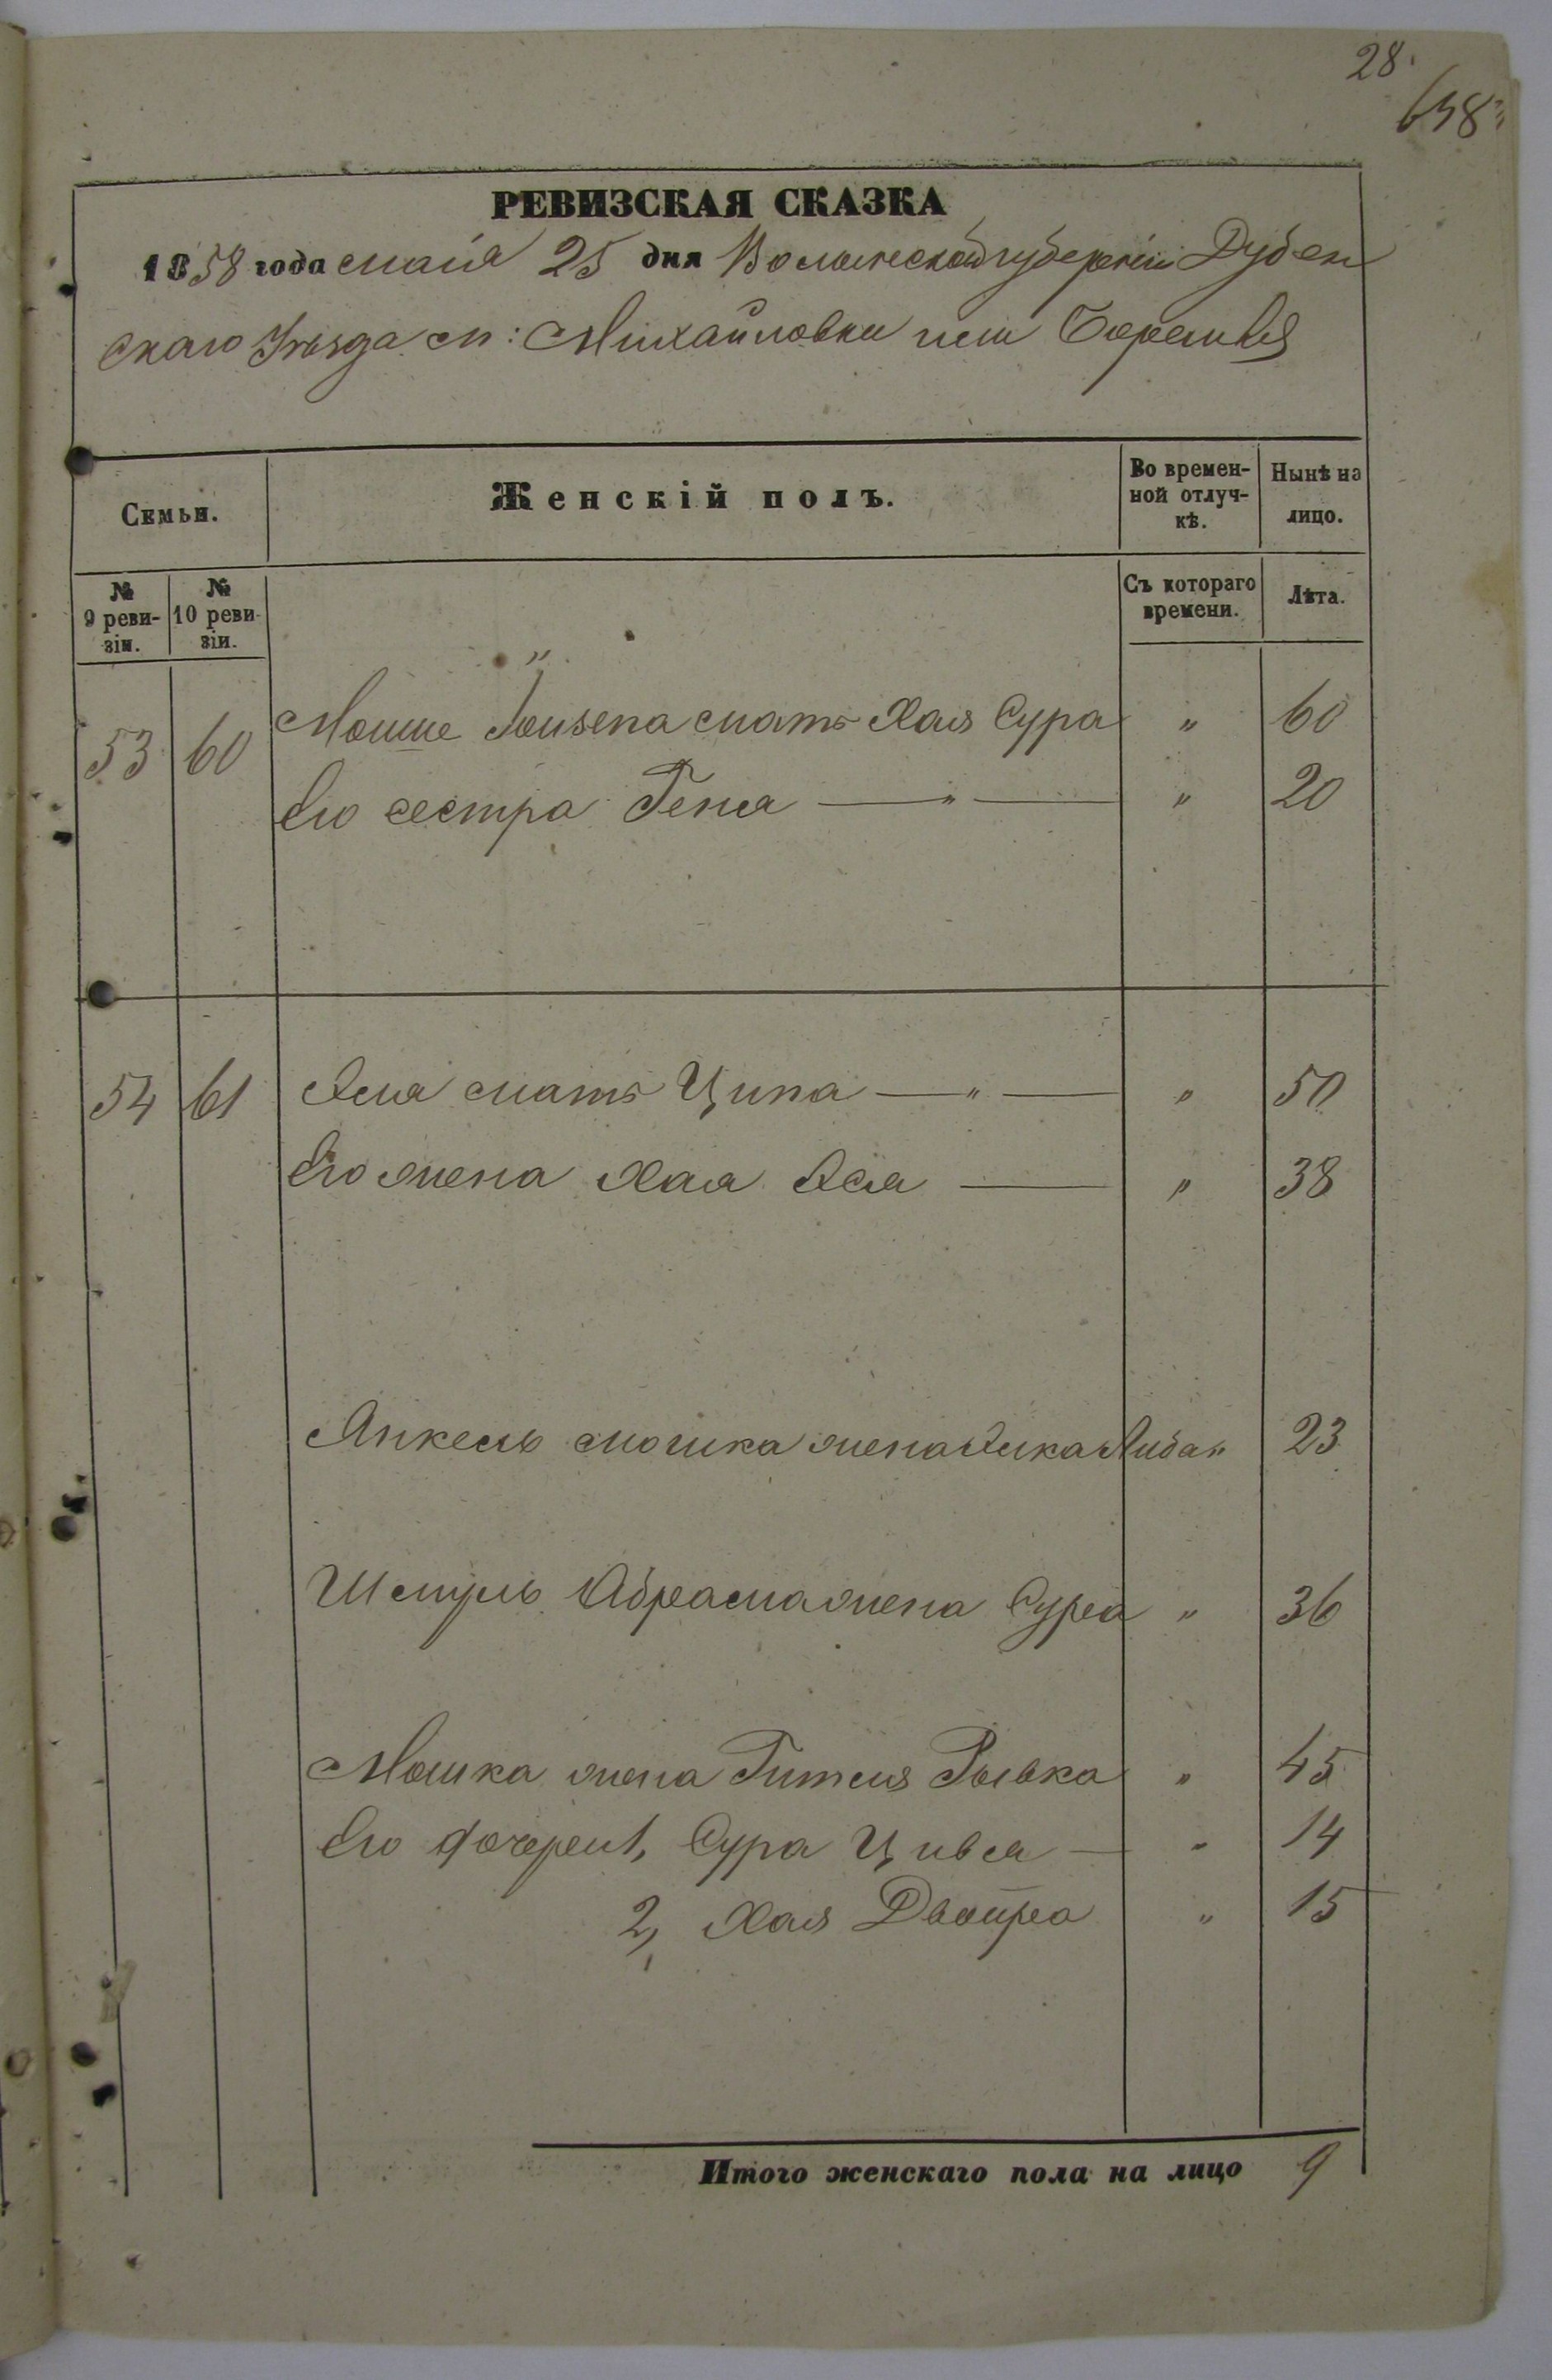 28.
658
РЕВИЗСКАЯ СКАЗКА
1858 года мая 25 дня Волынской губернiи Дубен
скаго Уѣзда м: Михайловки или Боремля
Семьи.
Женскiй полъ.
Во времен-
ной отлуч-
кѣ.
Нынѣ на
лицо.
№
9 реви-
зiи.
№
10 реви-
зiи.
Съ котораго
времени.
Лѣта.
"
53 60 Мошие Iоизепа мать Хая Сура " 60
Его сестра Геня — " — " 20
54 61 мать Ципа — " — " 50
Его жена Хая Ася — " 38
Янкель мошка жена Либа " 23
Шмуль Абрама жена Сура " 36
Мошка жена Гитля Рывка " 45
Его дочери 1, Сура Цивя — " 14
2, Хая Двойра " 15
Итого женскаго пола на лицо 9